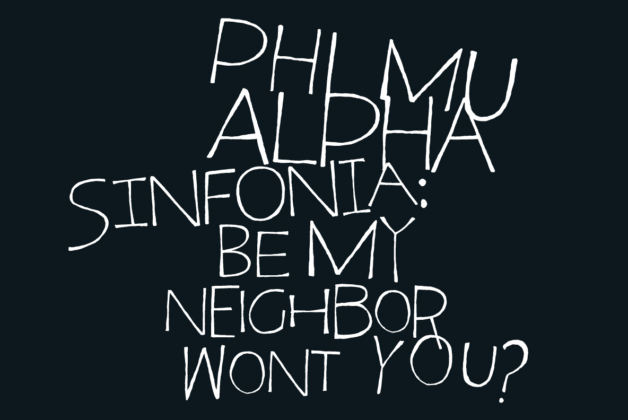 PHI MU
ALPHA
SINFONIA:
BE MY
NEIGHBOR
WONT YOU?